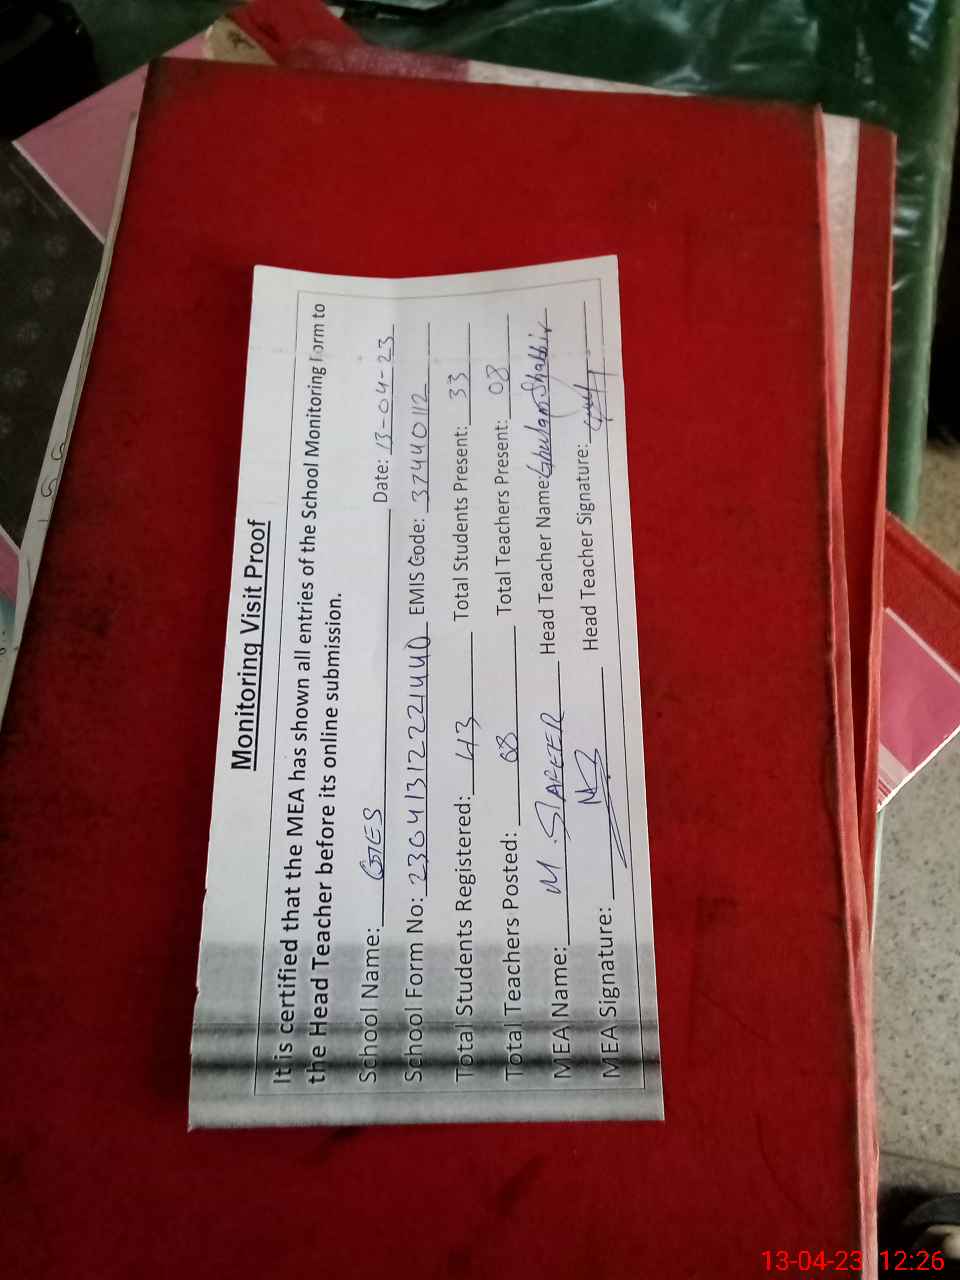 Monitoring Visit Proof
It is certified that the MEA has shown all entries of the School Monitoring Form to
the Head Teacher before its online submission.
School Name: GES Date: 13-04-23
School Form No: 23041312221440 EMIS Code: 37440112
Total Students Registered: 43 Total Students Present: 33
Total Teachers Posted: 08 Total Teachers Present: 08
MEA Name: M. SAFEER Head Teacher Name: Ghulam Shabbir
MEA Signature: Head Teacher Signature:
13-04-23 12:26